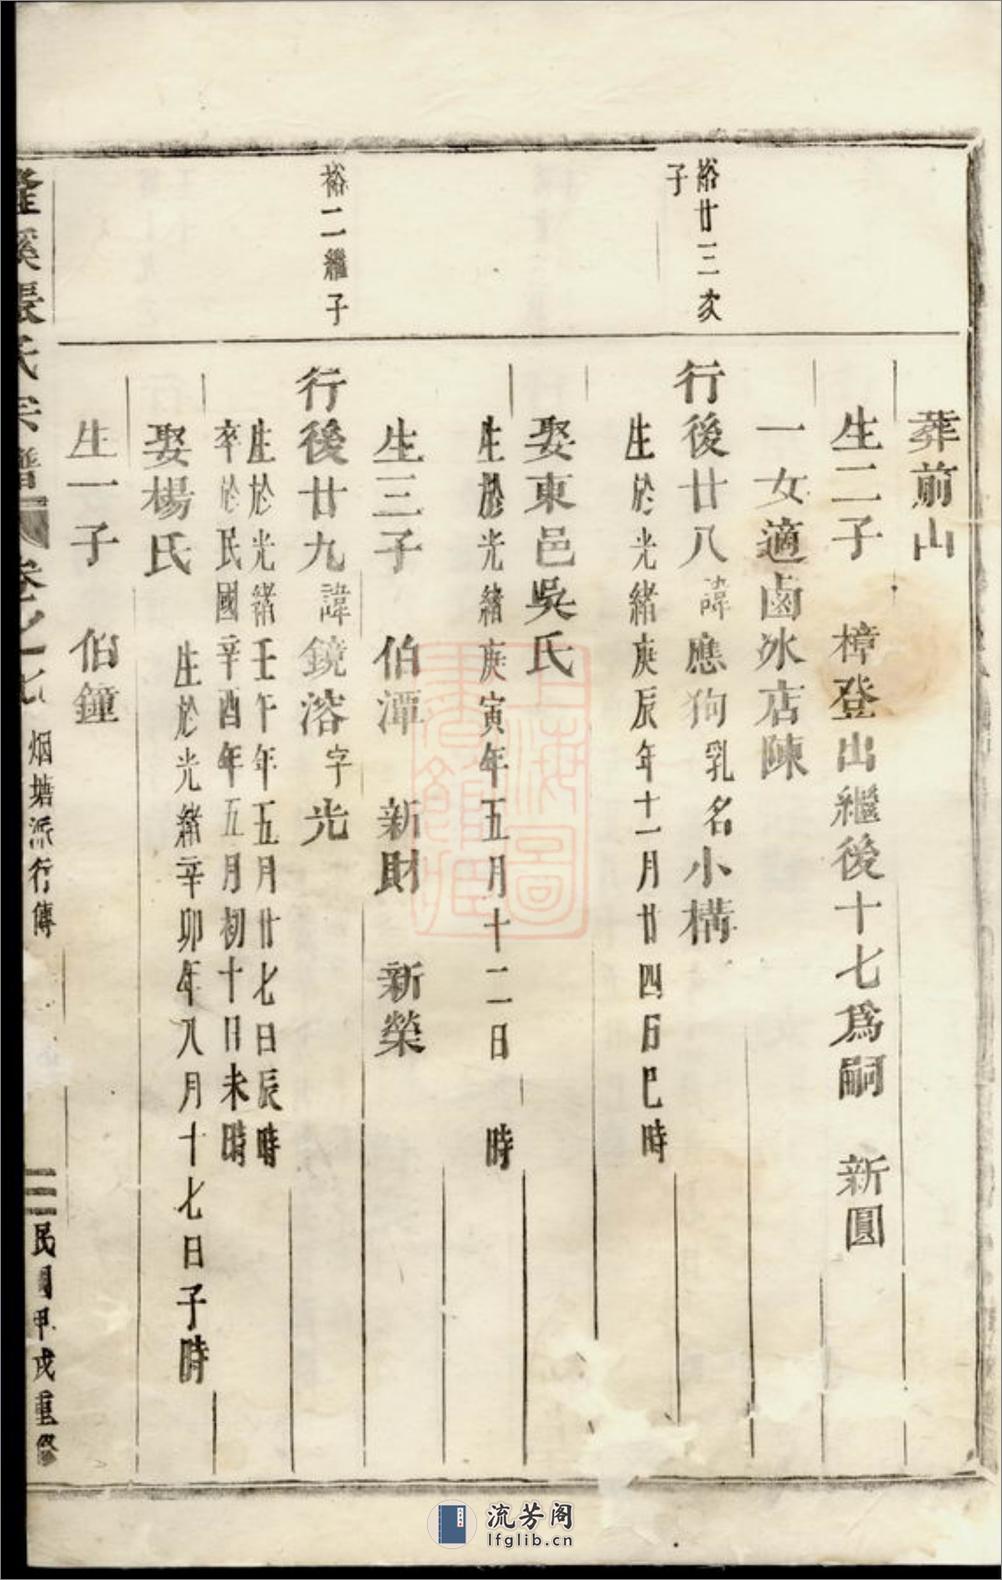 葬前山
生二子　樟登出繼後十七爲嗣　新圓
一女適鹵氷店陳
裕廿三次
子
行後廿八諱應狗乳名小構
生於光緒庚辰年十一月廿四日巳時
娶東邑吳氏
生於光緒庚寅年五月十二日　時
生三子　伯潭　新財　新榮
裕二繼子
行後廿九諱鏡溶字光
生於光緒壬午年五月廿七日辰時
卒於民國辛酉年五月初十日未時
娶楊氏
生於光緒辛卯年八月十七日子時
生一子　伯鐘
溪張氏宗譜　卷之七　烟塘派行傳　三　民國甲戌重修
上海圖書館藏
流芳阁
lfglib.cn